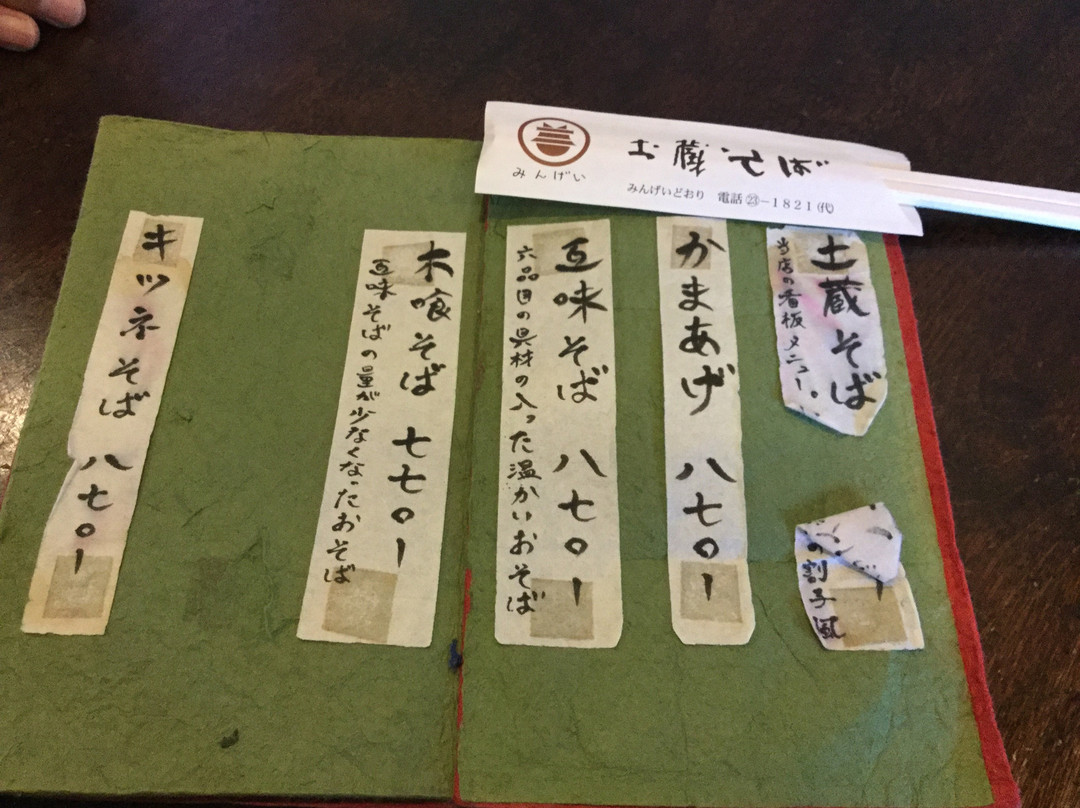 みんげい
土蔵そば
みんげいどおり 電話㉓−1821(代)
土蔵そば
当店の看板メニュー。
の割子風
かまあげ 八七〇ー
五味そば 八七〇ー
六品目の具材の入った温かいおそば
木喰そば 七七〇ー
五味そばの量が少なくなったおそば
キツネそば 八七〇ー